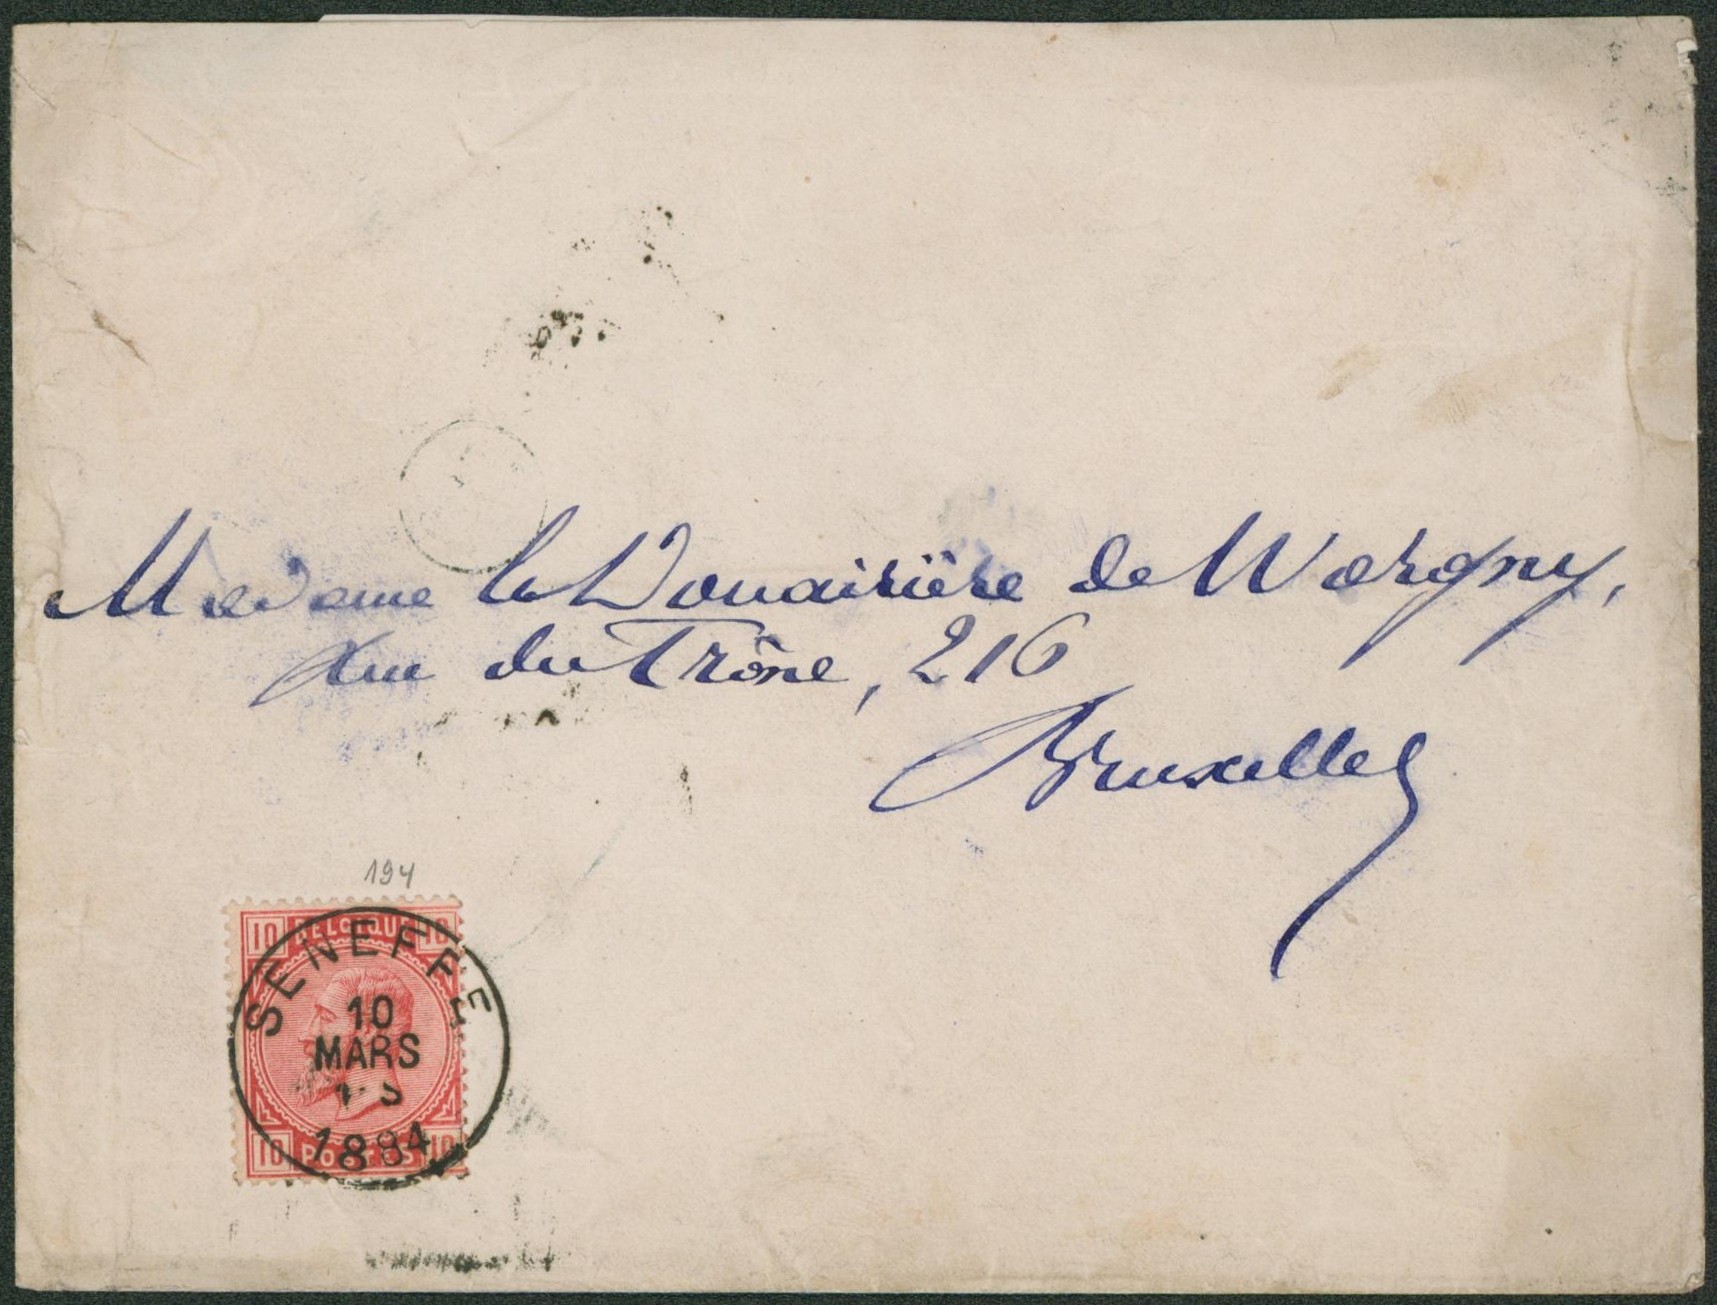 Madame la Douairière de Wargny,
rue du Trône, 216
Bruxelles
194
10 BELGIQUE 10
SENEFFE
10
MARS
1884
10 POSTES 10